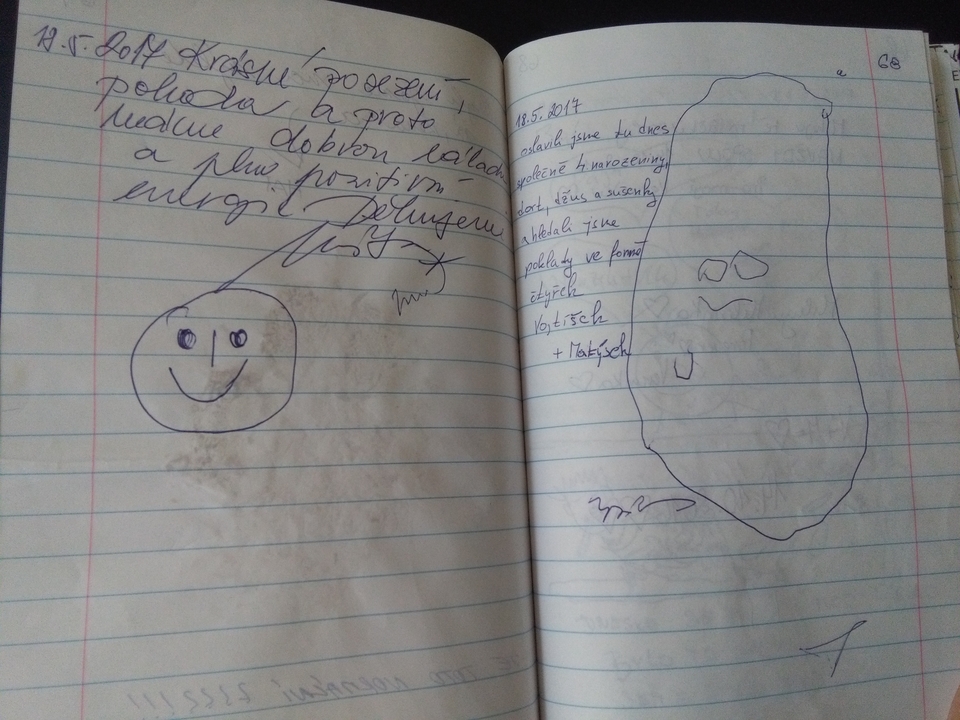 18.5.2017 Krásné posezení,
pohoda a proto
máme dobrou náladu
a plno pozitivní
energie. Děkujeme
68
18.5.2017
oslavili jsme tu dnes
společně 4 narozeniny,
dort, džus a sušenky
a hledali jsme
poklady ve formě
čtyřek
Vojtíšek
+ Matýsek